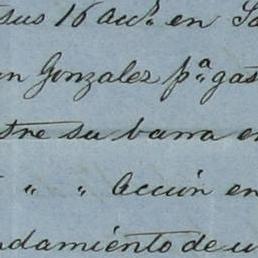 sus 16 acc.s en
n Gonzalez p.a gas
tre su barra e
" " Acción en
ndamiento de u